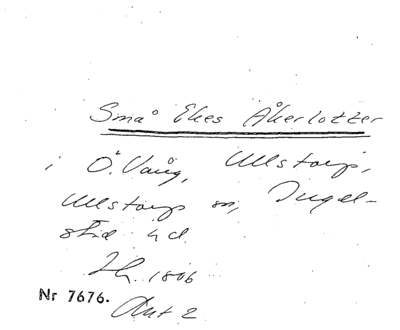 Små Ekes Åkerlotter
i Ö. Vång, Ullstorp,
Ullstorp sn, Ingel-
stad hd.
Lh. 1806
Nr 7676. Akt 2